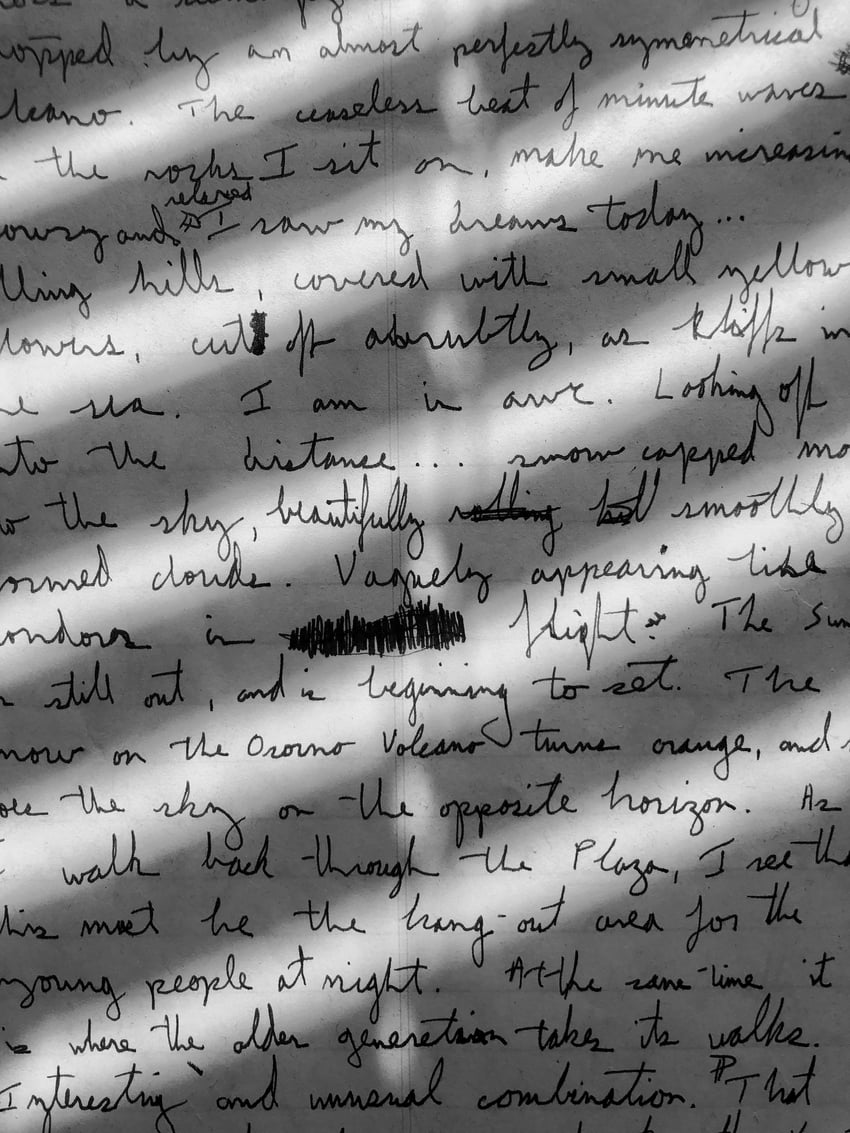 opped by an almost perfestly symmetrical
lcano. The ceaseless beat of minute waves
the rocks I sit on, make me increasin
relaxed
owsy and I saw my dreams today...
lling hills, covered with small yellow
lowers, cut off abrubtly, as kliffs in
he sea. I am in awe. Looking off
nto the distance... snow capped mo
w the sky, beautifully rolling smoothly
ormed clouds. Vaguely appearing like
ondors in flight. The Sun
still out, and is beginning to set. The
now on the Osorno Volcano turns orange, and
the sky on the opposite horizon. As
I walk back through the Plaza, I see tha
his must be the hang-out area for the
young people at night. At the same time it
is where the older generation takes its walks.
Interesting and unusual combination. That